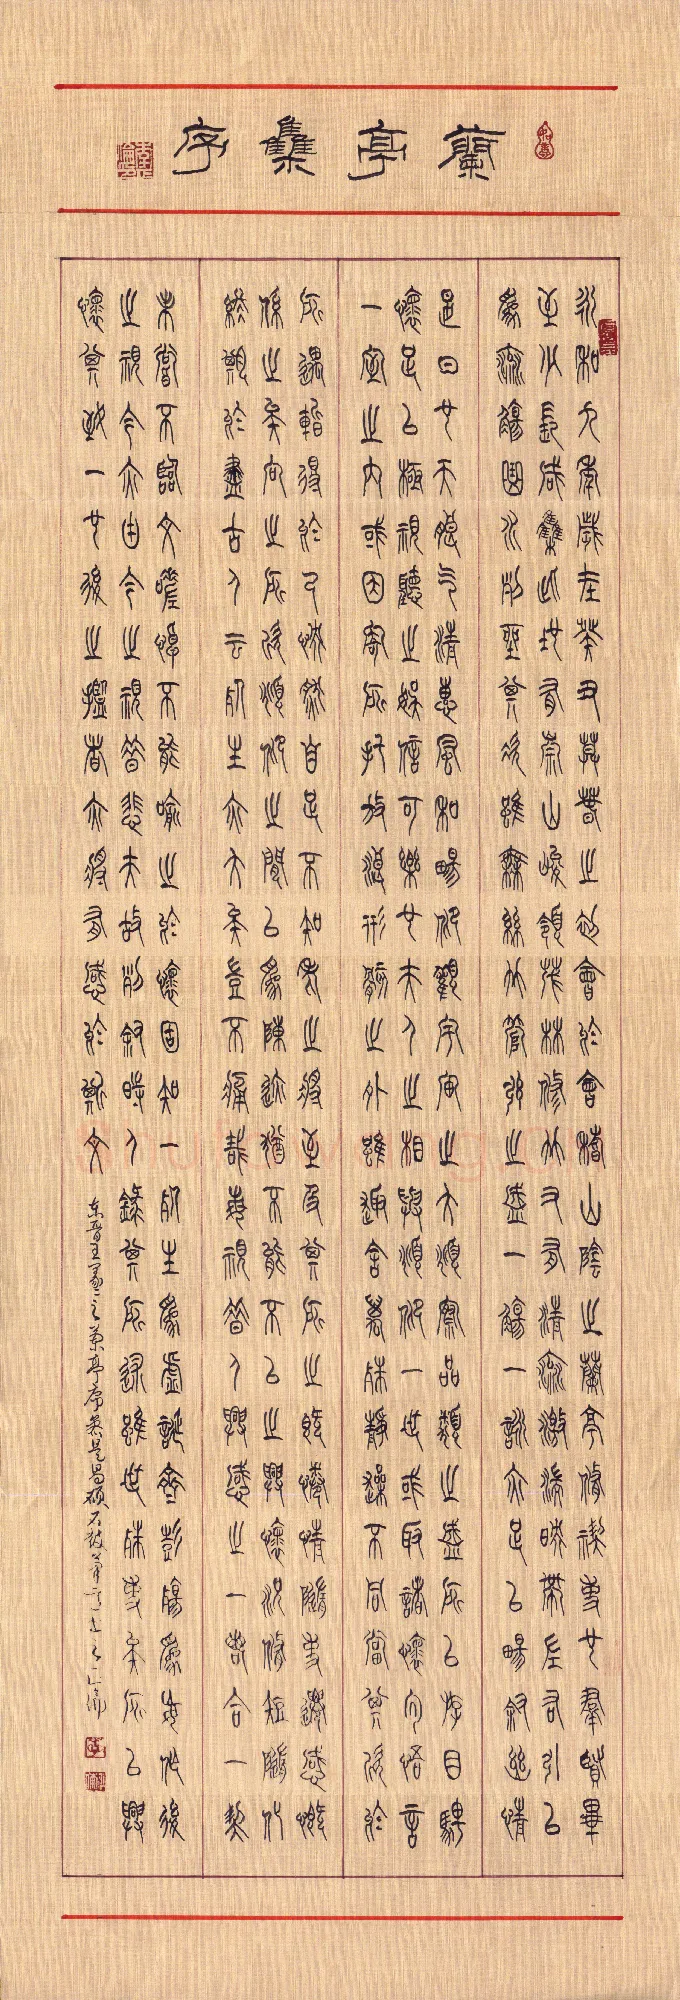 蘭亭集序
永和九年歲在癸丑莫春之初會於會稽山陰之蘭亭脩禊事也羣賢畢
至少長咸集此地有崇山峻領茂林修竹又有清流激湍映帶左右引以
為流觴曲水列坐其次雖無絲竹管弦之盛一觴一詠亦足以暢敘幽情
是日也天朗氣清惠風和暢仰觀宇宙之大俯察品類之盛所以遊目騁
懷足以極視聽之娛信可樂也夫人之相與俯仰一世或取諸懷抱悟言
一室之內或因寄所託放浪形骸之外雖趣舍萬殊靜躁不同當其欣於
所遇暫得於己快然自足不知老之將至及其所之既惓情隨事遷感慨
係之矣向之所欣俯仰之間以為陳迹猶不能不以之興懷況脩短隨化
終期於盡古人云死生亦大矣豈不痛哉每視昔人興感之一昔合一契
未嘗不臨文嗟悼不能喻之於懷固知一死生為虛誕齊彭殤為妄作後
之視今亦由今之視昔悲夫故列敘時人錄其所述雖世殊事異所以興
懷其致一也後之攬者亦將有感於斯文
東晉王羲之蘭亭序吳昌碩石鼓筆意